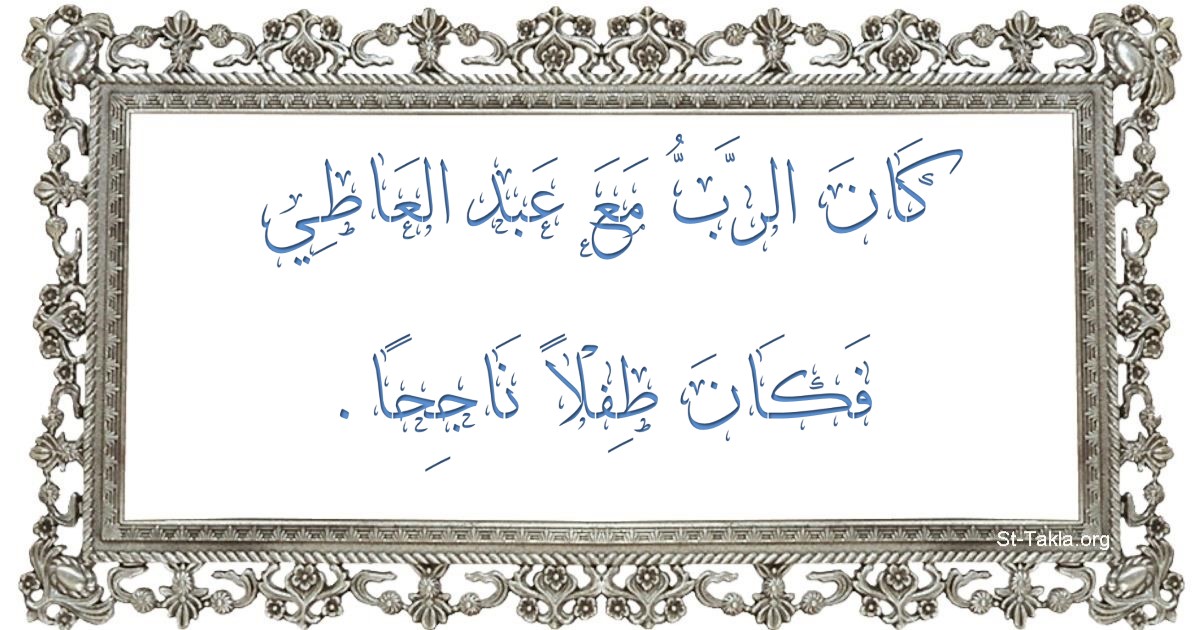 كَانَ الرَّبُّ مَعَ عَبْد العَاطِي
فَكَانَ طِفْلاً نَاجِحًا .
St-Takla.org